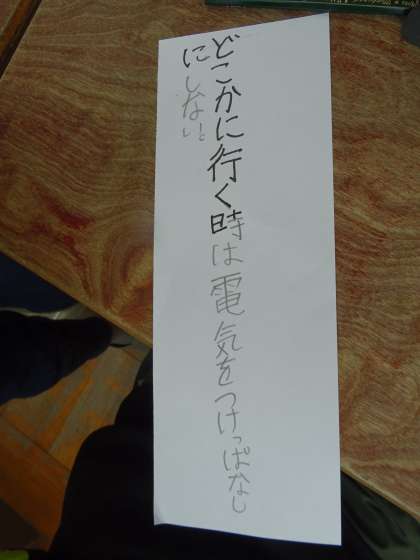 どこかに行く時は電気をつけっぱなし
にしない。